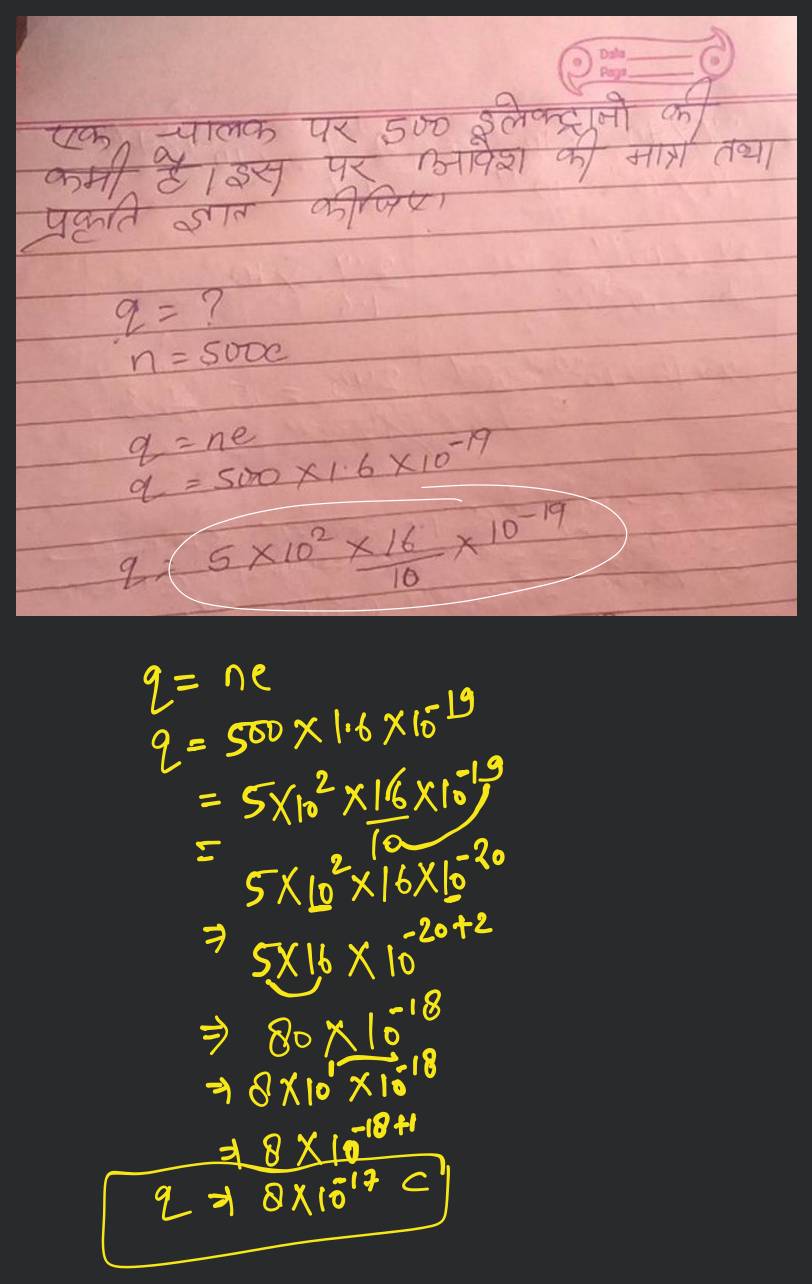 Date
Page
एक चालक पर 500 इलेक्ट्रानो की
कमी है। इस पर आवेश की मात्रा तथा
प्रकृति ज्ञात कीजिए।
q = ?
n = 500e
q = ne
q = 500 × 1.6 × 10⁻¹⁹
q = 5 × 10² × 16/10 × 10⁻¹⁹
q = ne
q = 500 × 1.6 × 10⁻¹⁹
= 5 × 10² × 16/10 × 10⁻¹⁹
= 5 × 10² × 16 × 10⁻²⁰
⇒ 5 × 16 × 10⁻²⁰⁺²
⇒ 80 × 10⁻¹⁸
⇒ 8 × 10¹ × 10⁻¹⁸
⇒ 8 × 10⁻¹⁸⁺¹
q ⇒ 8 × 10⁻¹⁷ C